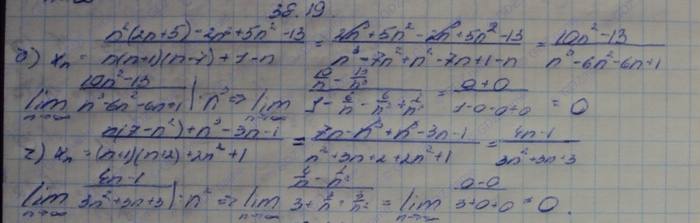 38.19.
б) xₙ = (n²(2n+5)-2n³+5n²-13)/(n(n+1)(n-7)+1-n) = (2n³+5n²-2n³+5n²-13)/(n³-7n²+n²-7n+1-n) = (10n²-13)/(n³-6n²-6n+1)
lim n→∞ (10n²-13)/(n³-6n²-6n+1) | : n³ => lim n→∞ (10/n - 13/n³)/(1-6/n-6/n²+1/n³) = (0+0)/(1-0-0+0) = 0
г) xₙ = (n(7-n²)+n³-3n-1)/((n+1)(n+2)+2n²+1) = (7n-n³+n³-3n-1)/(n²+3n+2+2n²+1) = (4n-1)/(3n²+3n+3)
lim n→∞ (4n-1)/(3n²+3n+3) | : n² => lim n→∞ (4/n - 1/n²)/(3+3/n+3/n²) = lim n→∞ (0-0)/(3+0+0) = 0.